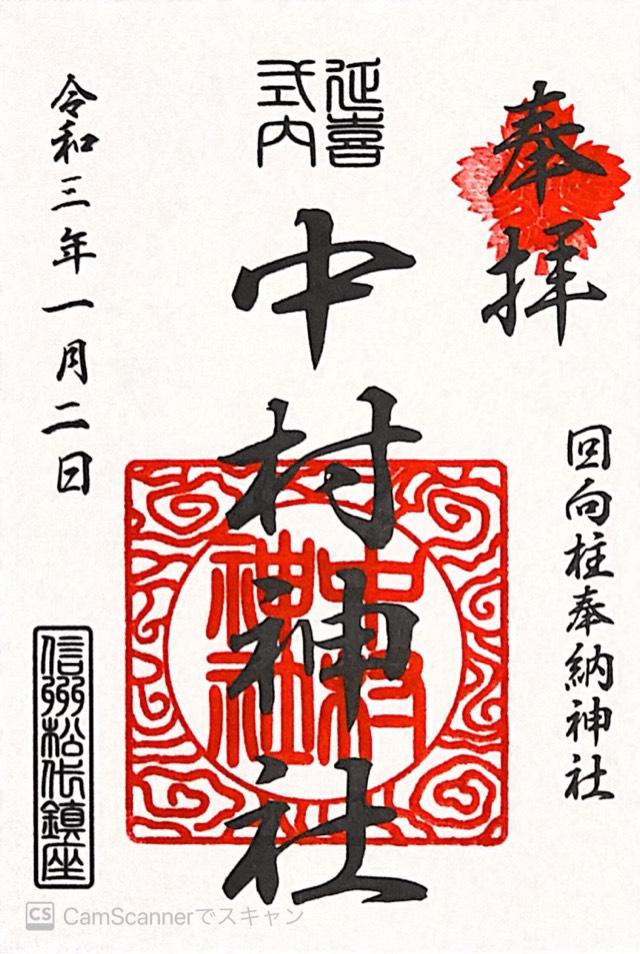 奉拝
回向柱奉納神社
延喜
式内
中村神社
中村
神社
令和三年一月二日
信州松代鎮座
CS CamScannerでスキャン